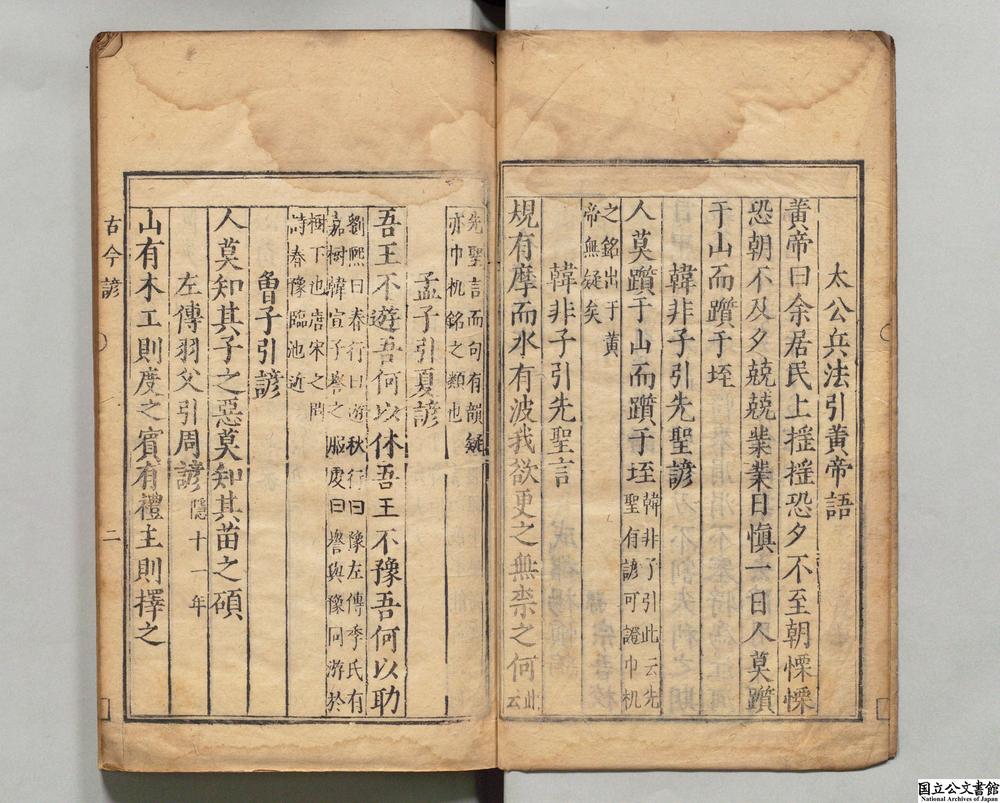 太公兵法引黃帝語
黃帝曰余居民上搖搖恐夕不至朝慄慄
恐朝不及夕兢兢業業日慎一日人莫躓
于山而躓于垤
韓非子引先聖諺
人莫躓于山而躓于垤聖有諺可證巾机韓非子引此云先
之銘出于黃
帝無疑矣
韓非子引先聖言
規有摩而水有波我欲更之無柰之何此云
先聖言而句有韻疑
亦巾机銘之類也
孟子引夏諺
吾王不遊吾何以休吾王不豫吾何以助
劉熙曰春行曰遊秋行曰豫左傳季氏有
嘉樹韓宣子譽之服虔曰譽與豫同游於
樹下也唐宋之間
詩春豫臨池近
魯子引諺
人莫知其子之惡莫知其苗之碩
左傳羽父引周諺隱十一年
山有木工則度之賓有禮主則擇之
古今諺
二
国立公文書館
National Archives of Japan